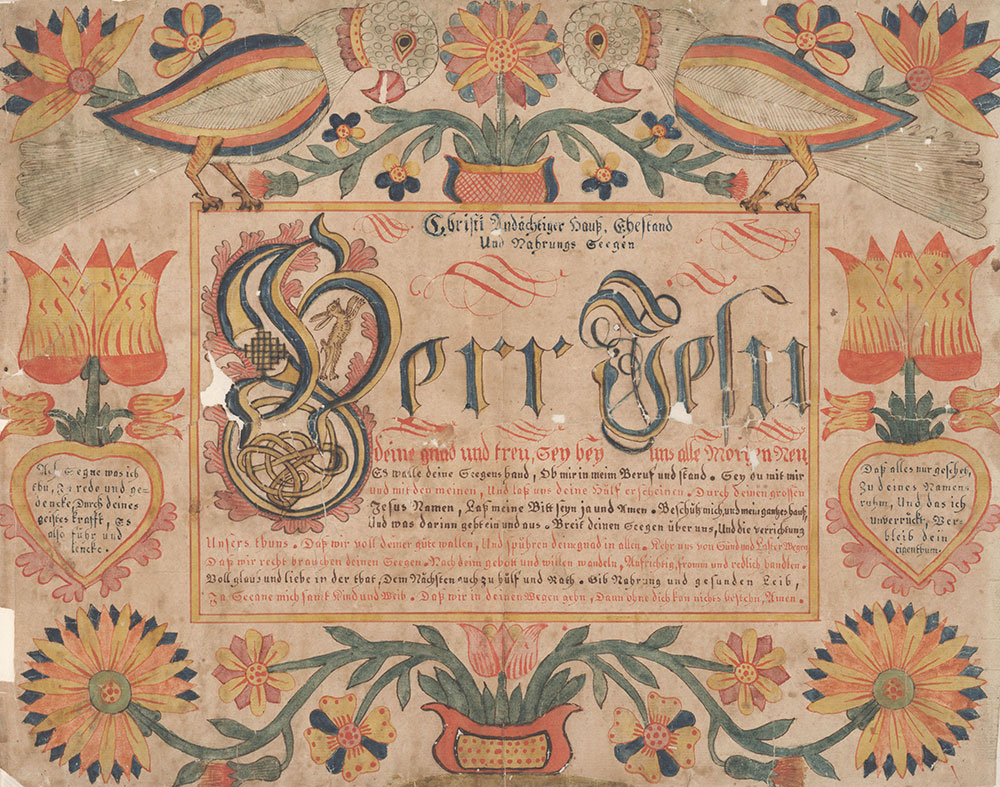 Christi Andächtiger Hauß, Ehestand
Und Nahrungs Seegen
Herr Jesu
deine gnad und treu, Sey beÿ uns alle Morgen Neu
Es walle deine Seegens hand, Ob mir in meim Beruf und stand. Sey du mit mir
und mit den meinen, Und laß uns deine Hülf erscheinen. Durch deinen grossen
Jesus Namen, Laß meine Bitt seyn ja und Amen. Beschütz mich, und mein gantzes hauß,
Und was darinn geht ein und aus. Breit deinen Seegen über uns, Und die verrichtung
Unsers thuns. Daß wir voll deiner güte wallen, Und spühren deine gnad in allen. Kehr uns von Sünd und Laster Wegen
Daß wir recht brauchen deinen Seegen. Nach deim gebott und willen wandeln, Auffrichtig, fromm und redlich handlen.
Voll glaub und liebe in der that, Dem Nächsten auch zu hülf und Rath. Gib Nahrung und gesunden Leib,
Ja Seegne mich samt Kind und Weib. Daß wir in deinen Wegen gehn, Dann ohne dich kan nichts bestehn, Amen.
Ach Segne was ich
thu, Ja rede und ge-
dencke, Durch deines
geistes krafft, Es
also führ und
lencke.
Daß alles nur gescheh,
Zu deines Namens
ruhm, Und das ich
unverrückt, Ver-
bleib dein
eigenthum.